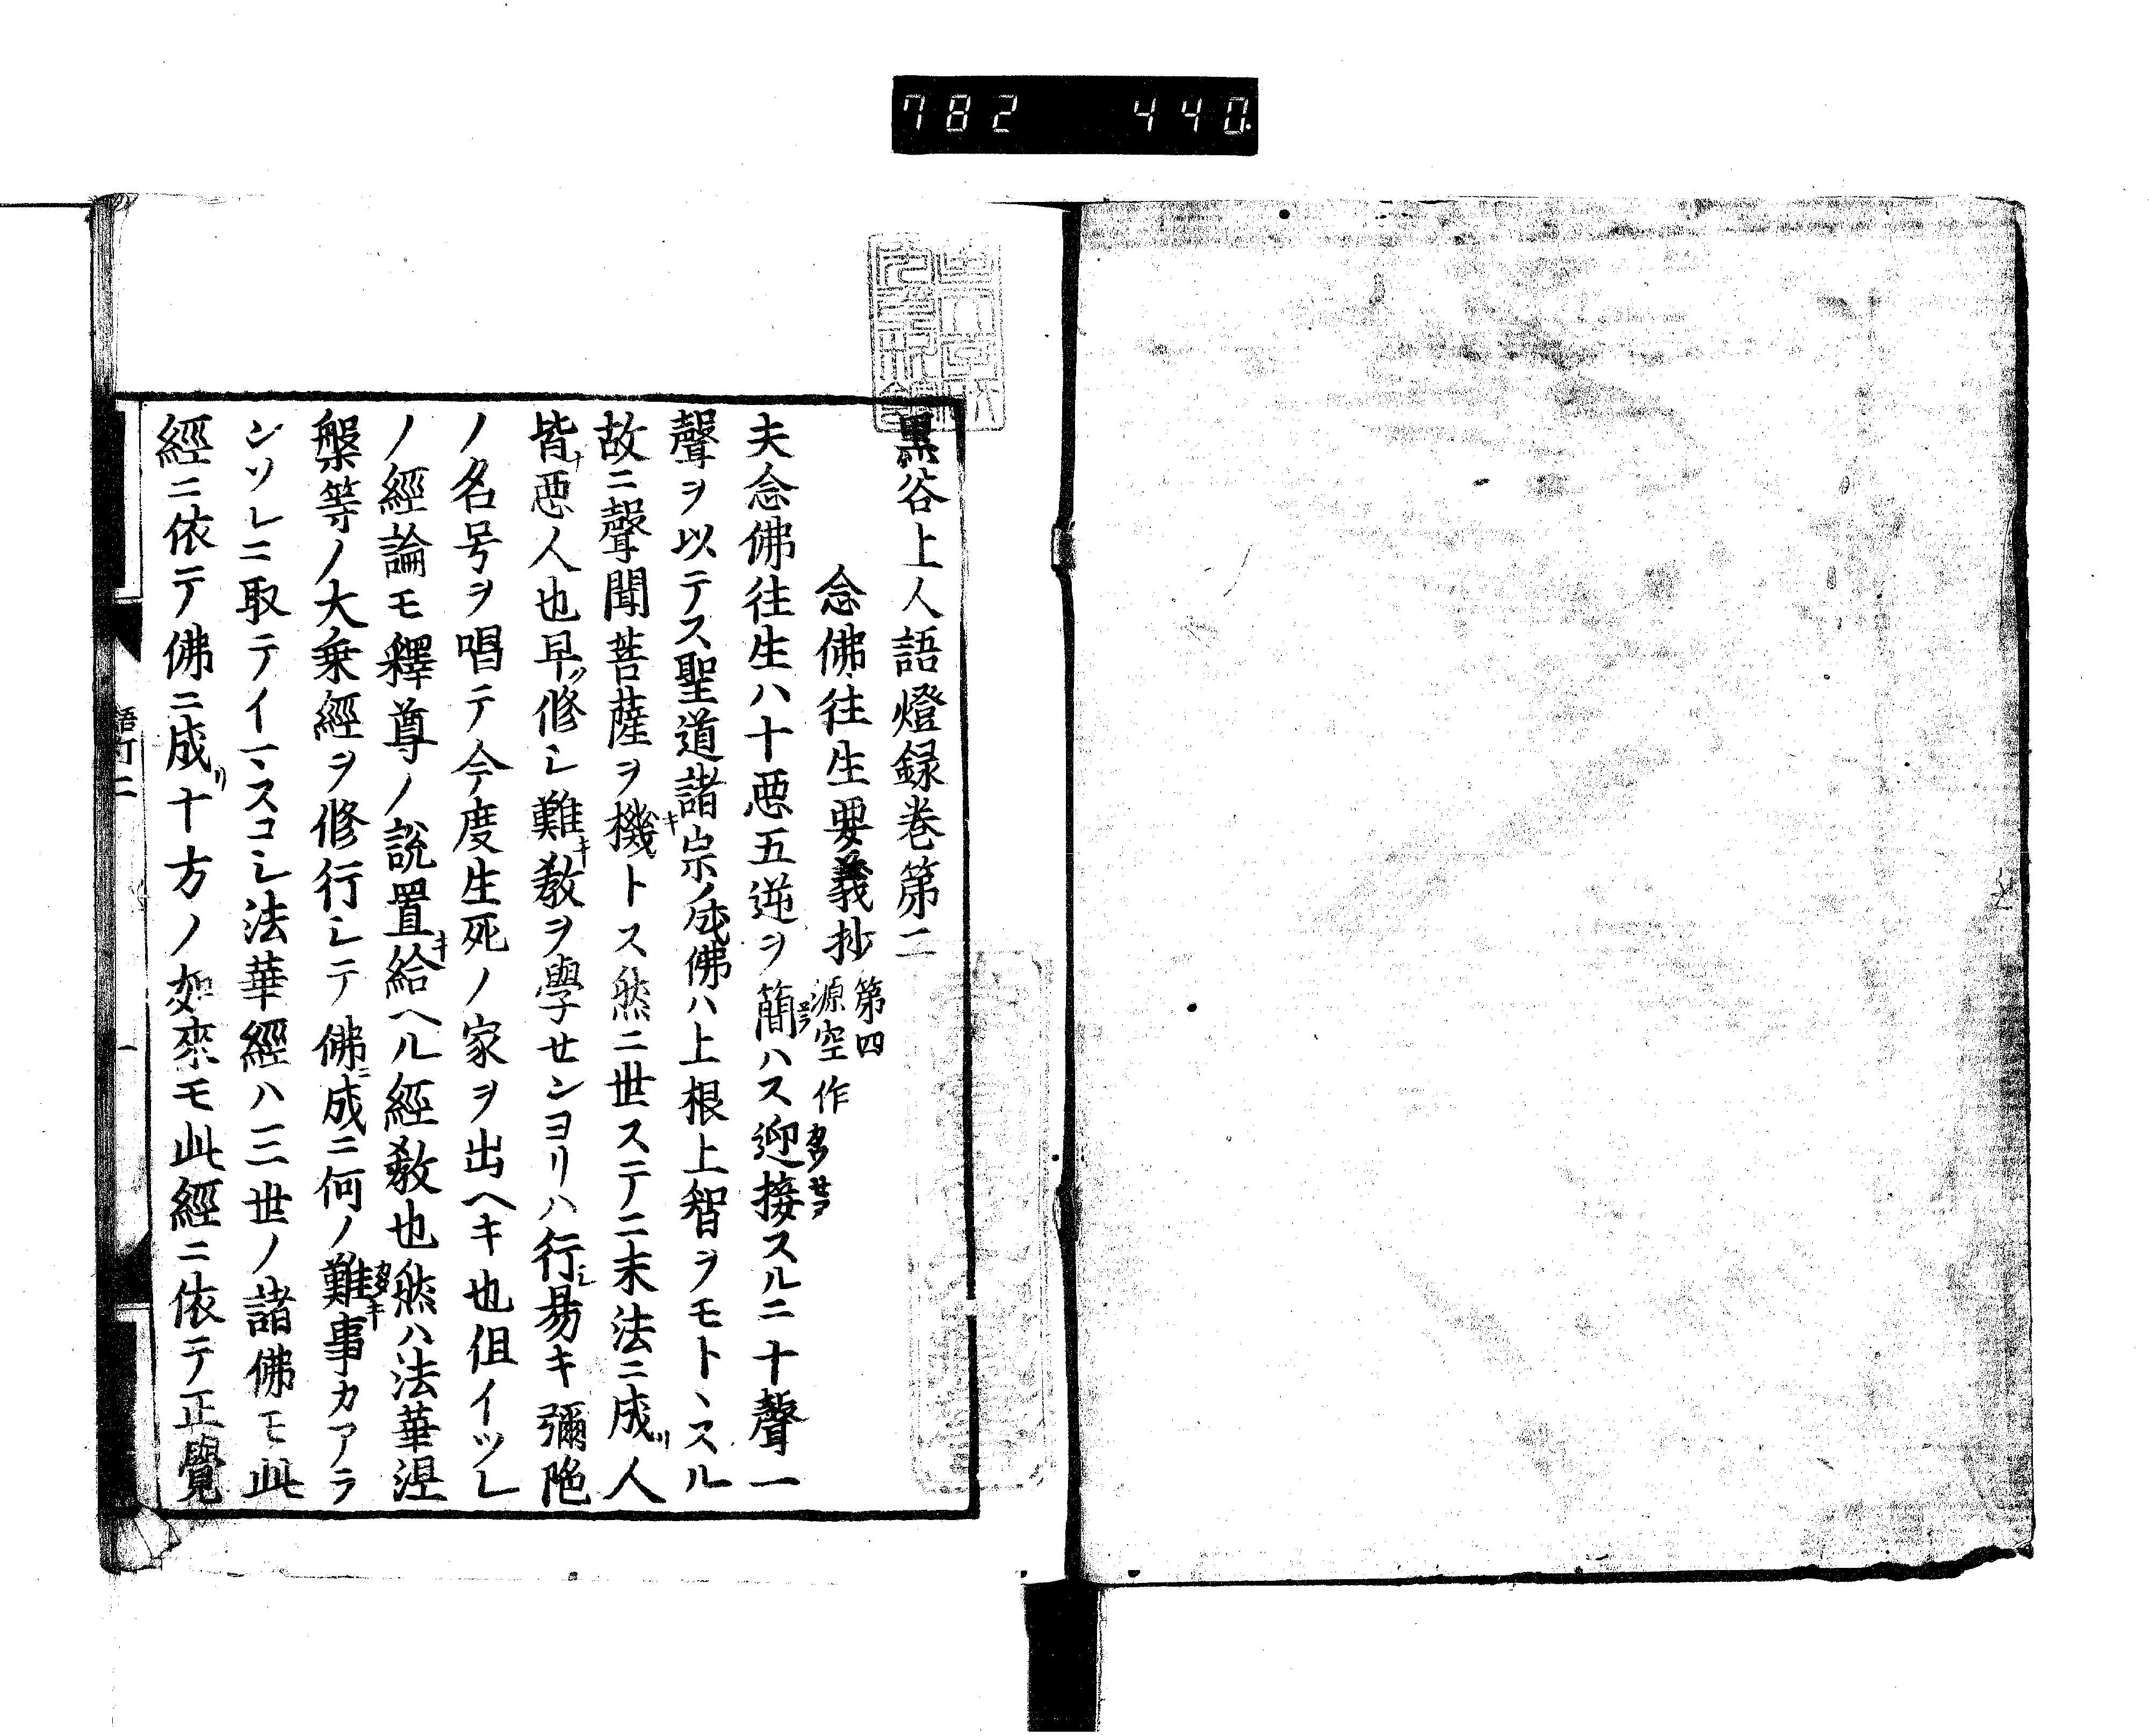 782 440
黒谷上人語燈録巻第二
念佛往生要義抄 第四 源空作
夫念佛往生ハ十悪五逆ヲ簡ハス迎接スルニ十聲一
聲ヲ以テス聖道諸宗ノ成佛ハ上根上智ヲモトヽスル
故ニ聲聞菩薩ヲ機トス然ニ世ステニ末法ニ成リ人
皆ナ悪人也早ク修シ難キ教ヲ學センヨリハ行シ易キ彌陁
ノ名号ヲ唱テ今度生死ノ家ヲ出ヘキ也但イツレ
ノ經論モ釋尊ノ説置キ給ヘル經教也然ハ法華涅
槃等ノ大乗經ヲ修行シテ佛ニ成ニ何ノ難キ事カアラ
ンソレニ取テイマスコシ法華經ハ三世ノ諸佛モ此
經ニ依テ佛ニ成リ十方ノ如來モ此經ニ依テ正覺
語灯二
一